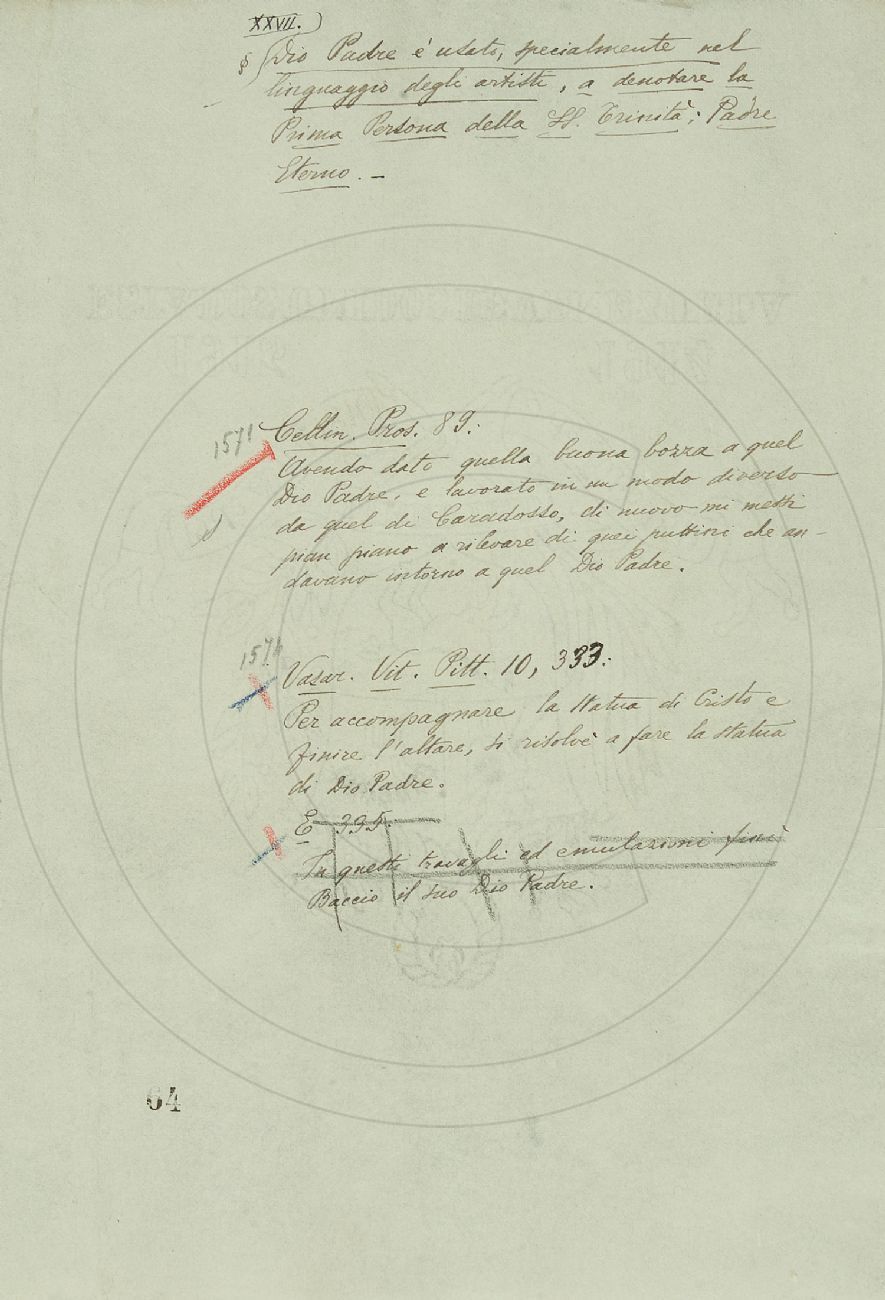 XXVII.)
§ Dio Padre è usato, specialmente nel
linguaggio degli artisti, a denotare la
Prima Persona della SS. Trinità; Padre
Eterno. –
1571 Cellin. Pros. 89:
Avendo dato quella buona bozza a quel
Dio Padre, e lavorato in un modo diverso
da quel di Caradosso, di nuovo mi metti
pian piano a rilevare di quei puttini che an-
davano intorno a quel Dio Padre.
1574
Vasar. Vit. Pitt. 10, 333:
Per accompagnare la statua di Cristo e
finire l'altare, si risolvè a fare la statua
di Dio Padre.
E 335.
In questi travagli ed emulazioni finì
Baccio il suo Dio Padre.
64